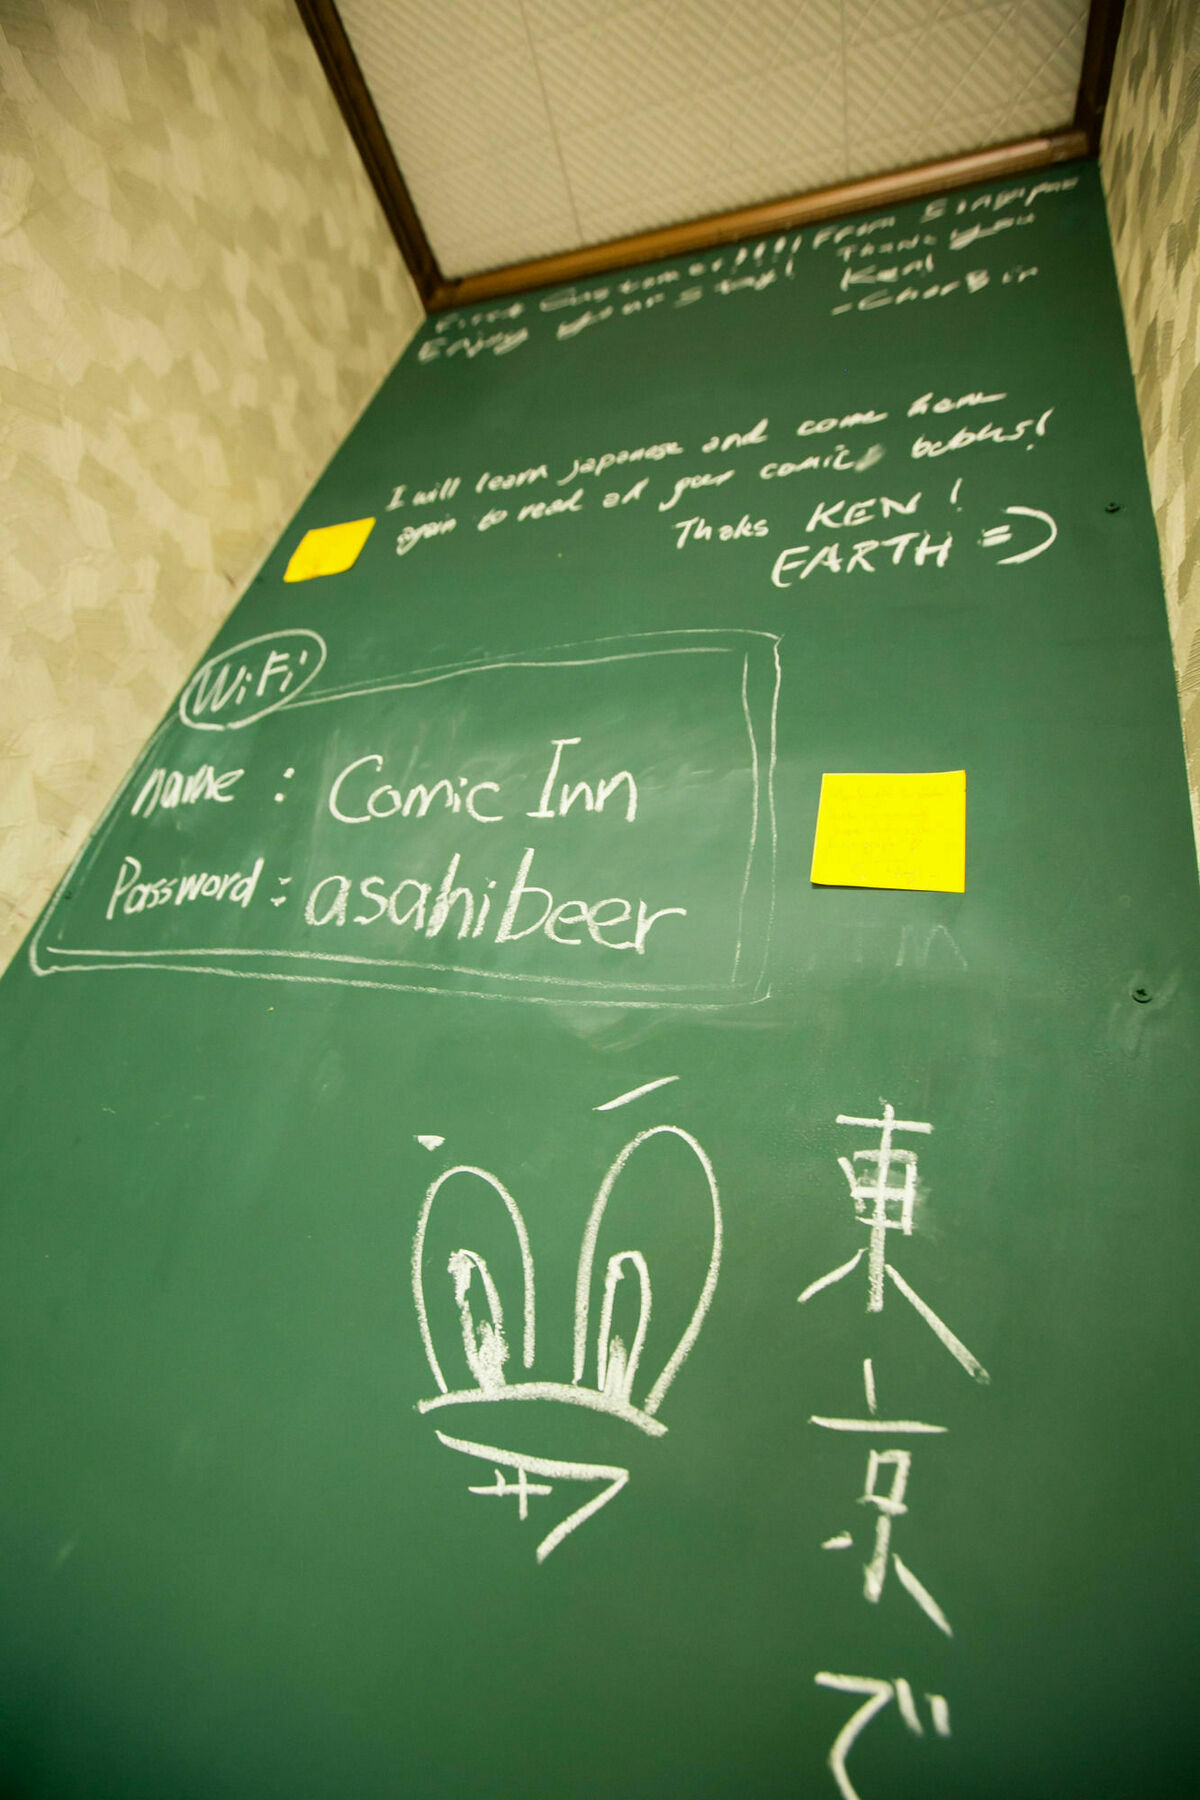 First Customer!!!! From Singapore
Enjoy your stay! Thank you
Ken!
I will learn japanese and come here
again to read all your comic bubbles!
Thaks KEN!
EARTH =)
WiFi
name : Comic Inn
Password : asahibeer
東京で